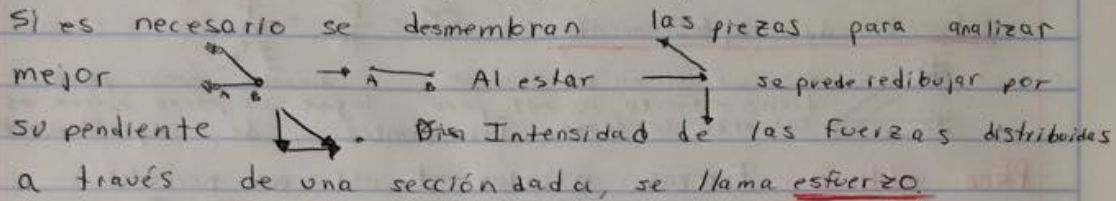 Si es necesario se desmembran las piezas para analizar
mejor A B → A B Al estar se puede redibujar por
su pendiente . Intensidad de las fuerzas distribuidas
a través de una sección dada, se llama esfuerzo.